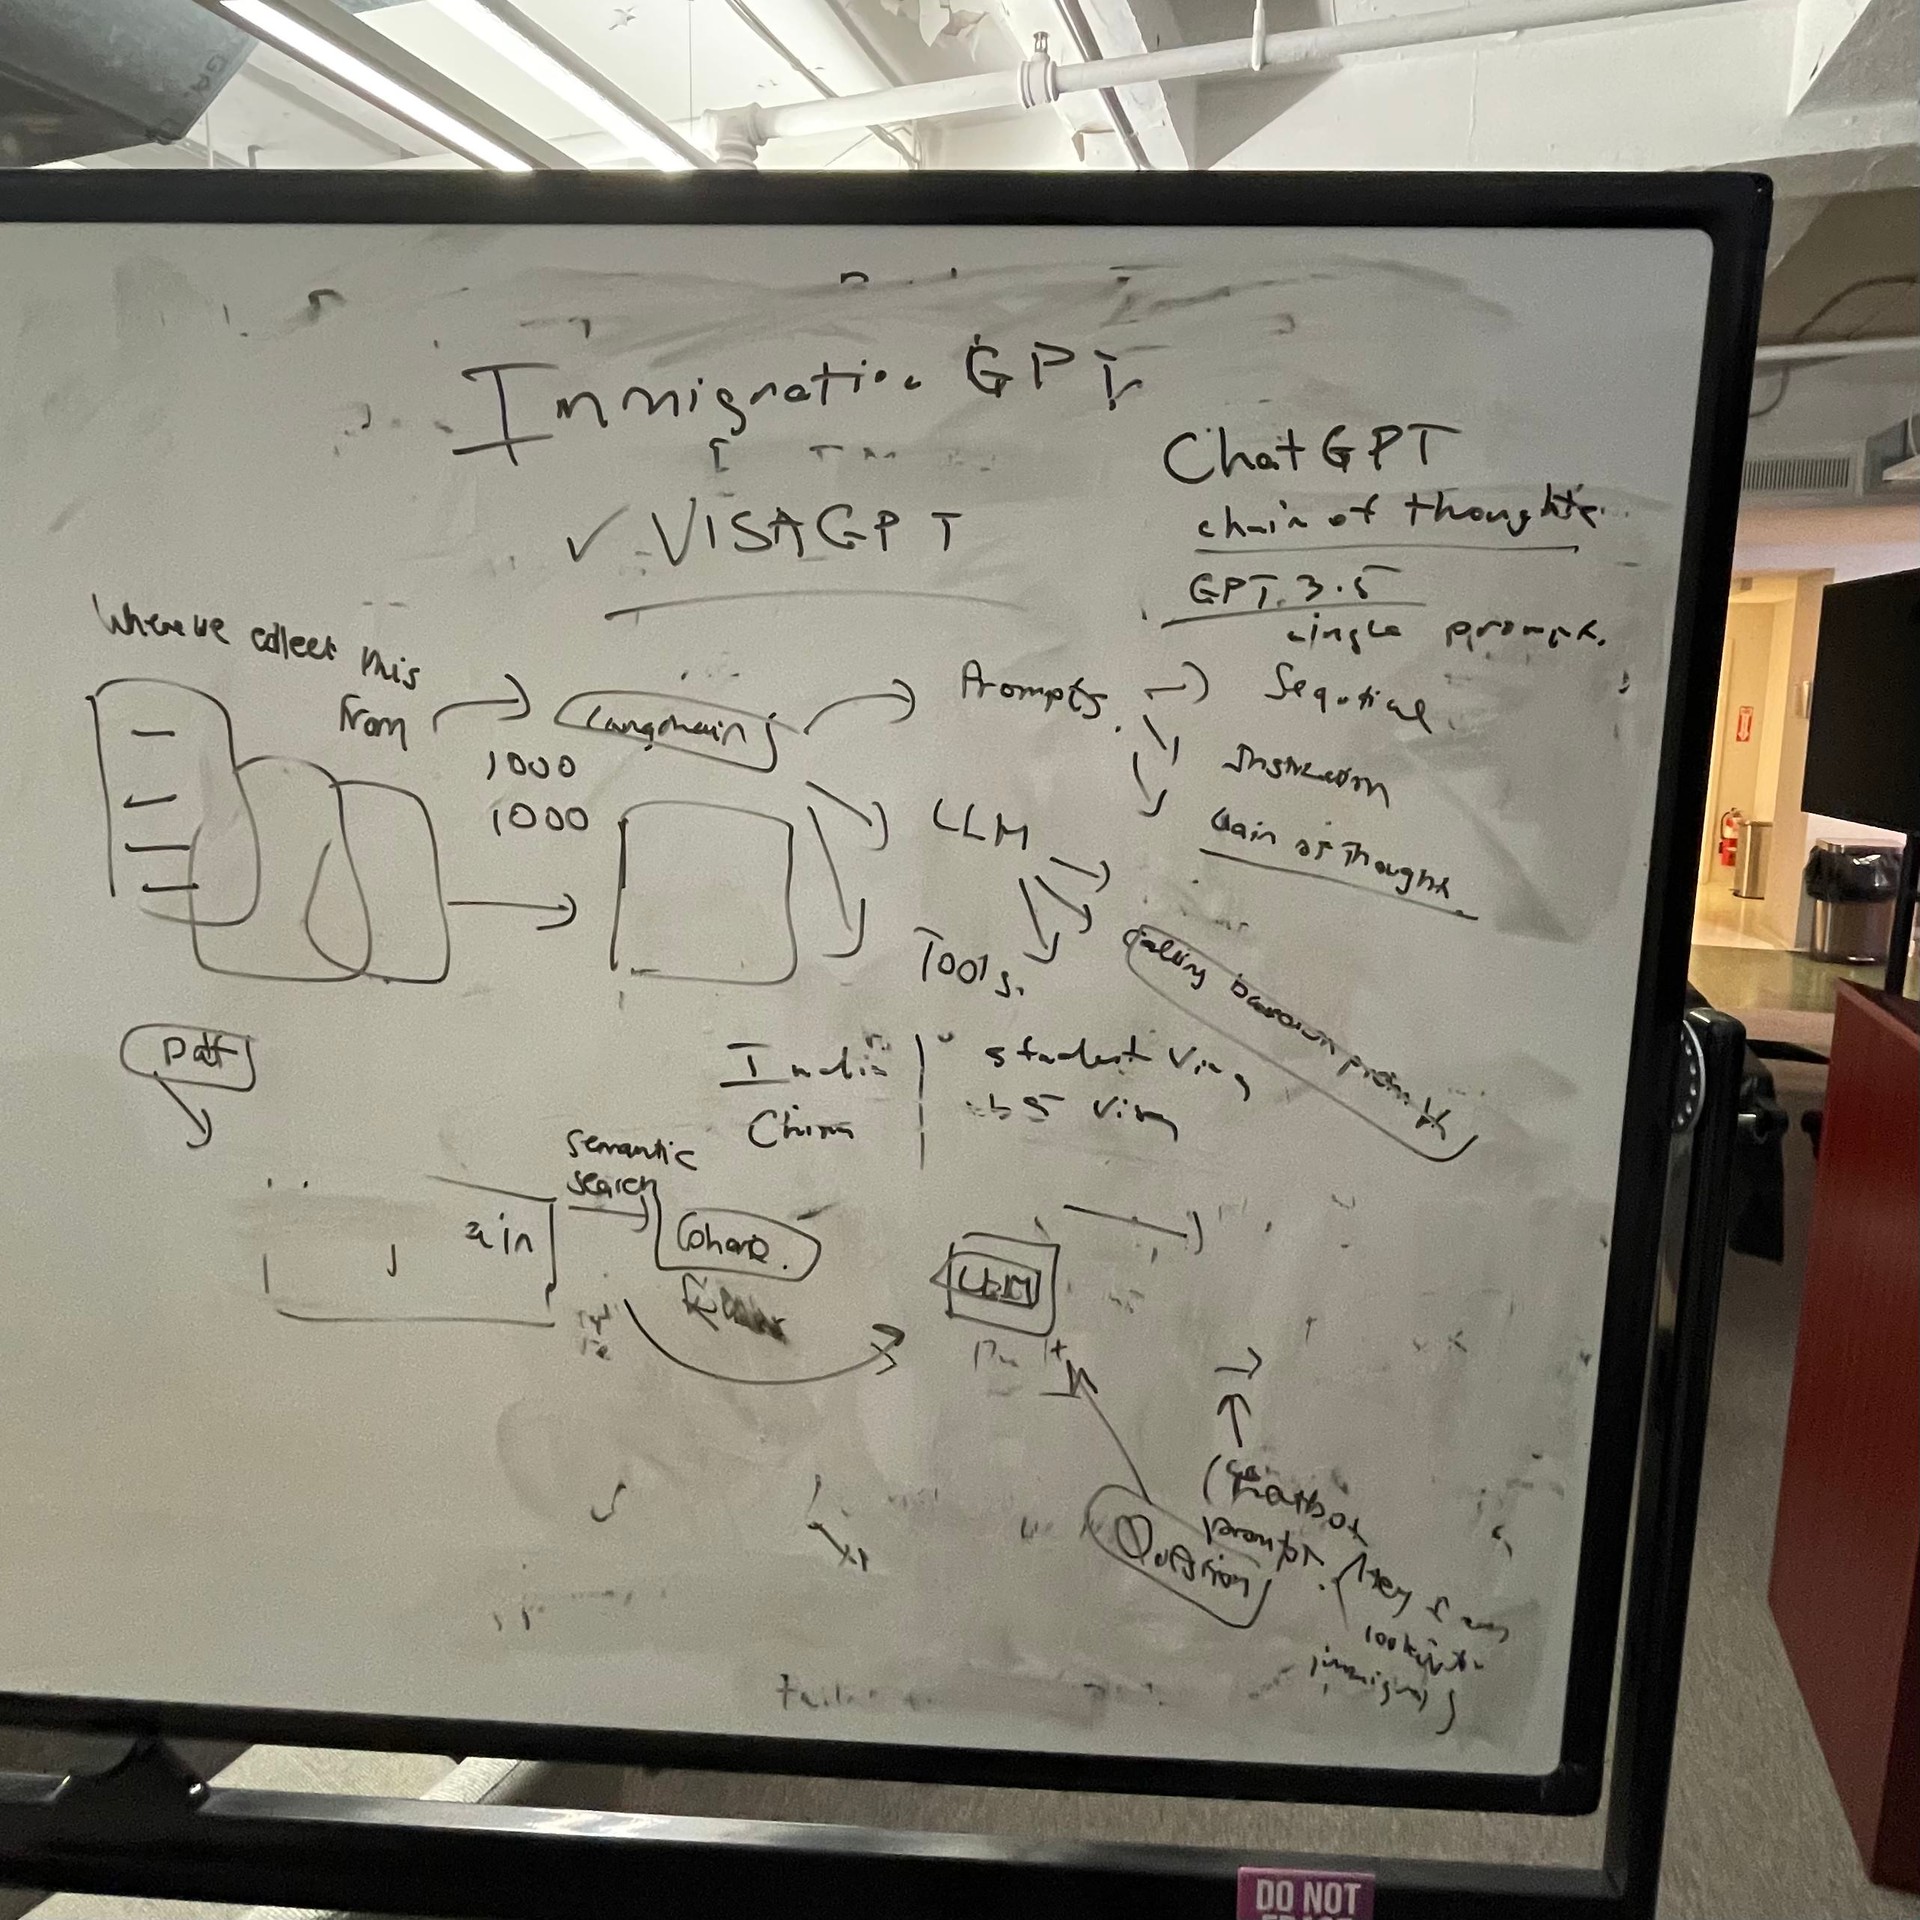 Immigration GPT
✓ VISAGPT
ChatGPT
chain of thoughts
GPT 3.5
single prompt.
Where we collect this
from
Langchain
1000
1000
Prompts
Sequtial
Instruction
Chain of Thought
LLM
Tools.
based on
India
China
student Visa
b5 Visa
Pdf
semantic
search
ain
Cohere.
LLM
Question
Chatbot
prompt.
Hey I am
looking to
immigrate
DO NOT